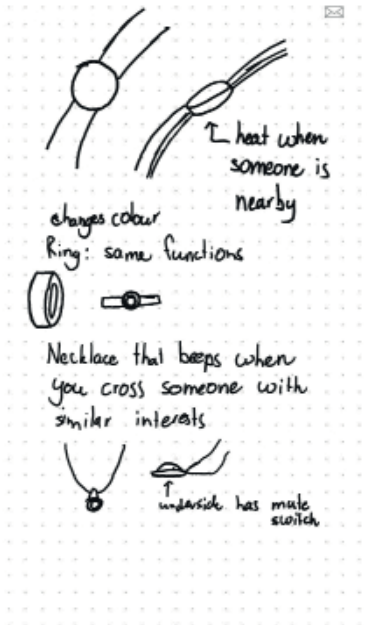 heat when
someone is
nearby
changes colour
Ring: same functions
Necklace that beeps when
you cross someone with
similar interests
underside has mute
switch